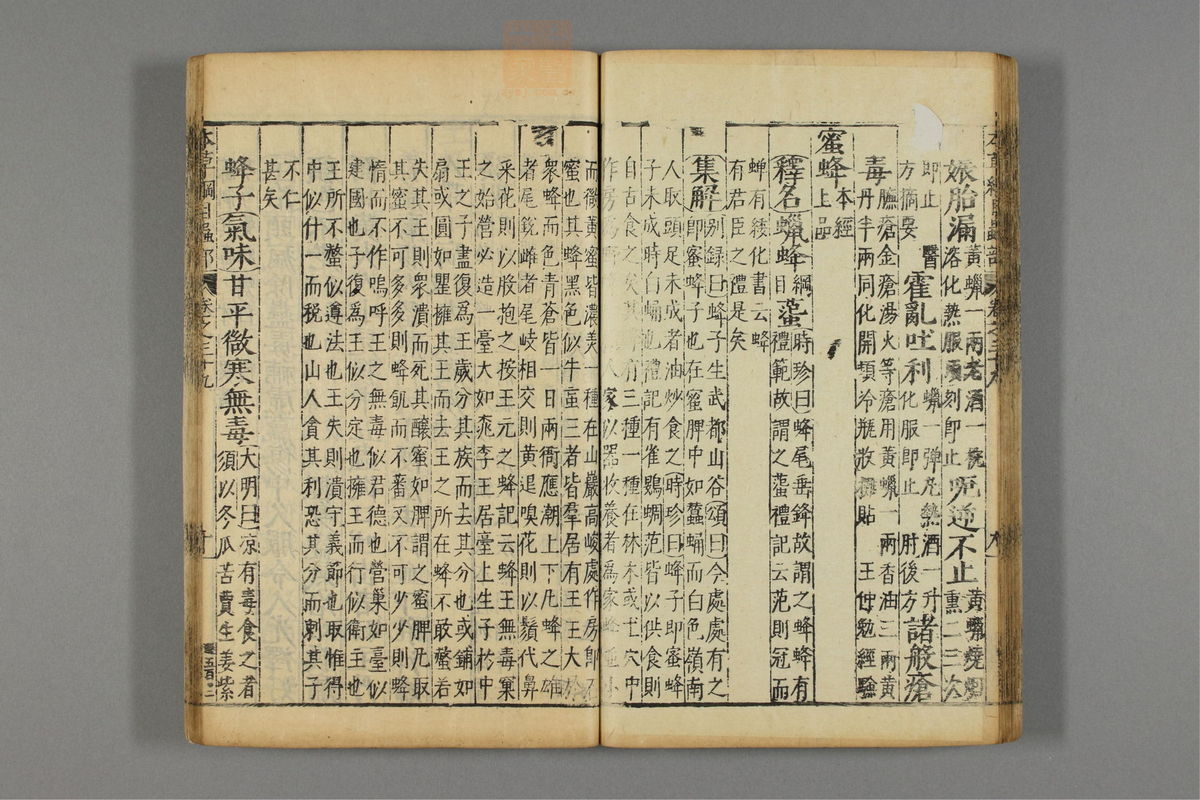 娠胎漏
黃蠟一兩老酒一椀
溶化熱服頃刻即止
呃逆不止
黃蠟燒烟
熏二三次
即止
方摘要
霍亂吐利
蠟一彈丸熱酒一升
化服即止　肘後方
諸般瘡
毒
臁瘡金瘡湯火等瘡用黃蠟一兩香油二兩黃
丹半兩同化開頓冷瓶收攤貼　王仲勉經驗
蜜蜂
本經
上品
釋名蠟蜂
綱目
䗬
時珍曰蜂尾垂鋒故謂之蜂蜂有
禮範故謂之䗬禮記云范則冠而
蟬有緌化書云蜂
有君臣之禮是矣
集解
別録曰蜂子生武都山谷頌曰今處處有之
即蜜蜂子也在蜜脾中如蠶蛹而白色嶺南
人取頭足未成者油炒食之時珍曰蜂子即蜜蜂
子未成時白蛹也禮記有雀鷃蜩范皆以供食則
自古食之矣其蜂有三種一種在林木或土穴中
作房為野蜂一種人家以器收養者為家蜂並小
而微黃蜜皆濃美一種在山巖高峻處作房即石
蜜也其蜂黑色似牛䖟三者皆羣居有王王大於
衆蜂而色青蒼皆一日兩衙應潮上下凡蜂之雄
者尾銳雌者尾岐相交則黃退嗅花則以鬚代鼻
采花則以股抱之按王元之蜂記云蜂王無毒窠
之始營必造一臺大如桃李王居臺上生子於中
王之子盡復爲王歲分其族而去其分也或鋪如
扇或圓如罌擁其王而去王之所在蜂不敢螫若
失其王則衆潰而死其釀蜜如脾謂之蜜脾凡取
其蜜不可多多則蜂飢而不蕃又不可少少則蜂
惰而不作嗚呼王之無毒似君德也營巢如臺似
建國也子復爲王似分定也擁王而行似衛主也
王所不螫似遵法也王失則潰守義節也取惟得
中似什一而稅也山人貪其利恐其分而刺其子
不仁
甚矣
蜂子氣味甘平微寒無毒
大明曰凉有毒食之者
須以冬瓜苦蕒生姜紫
本草綱目蟲部
卷之三十九